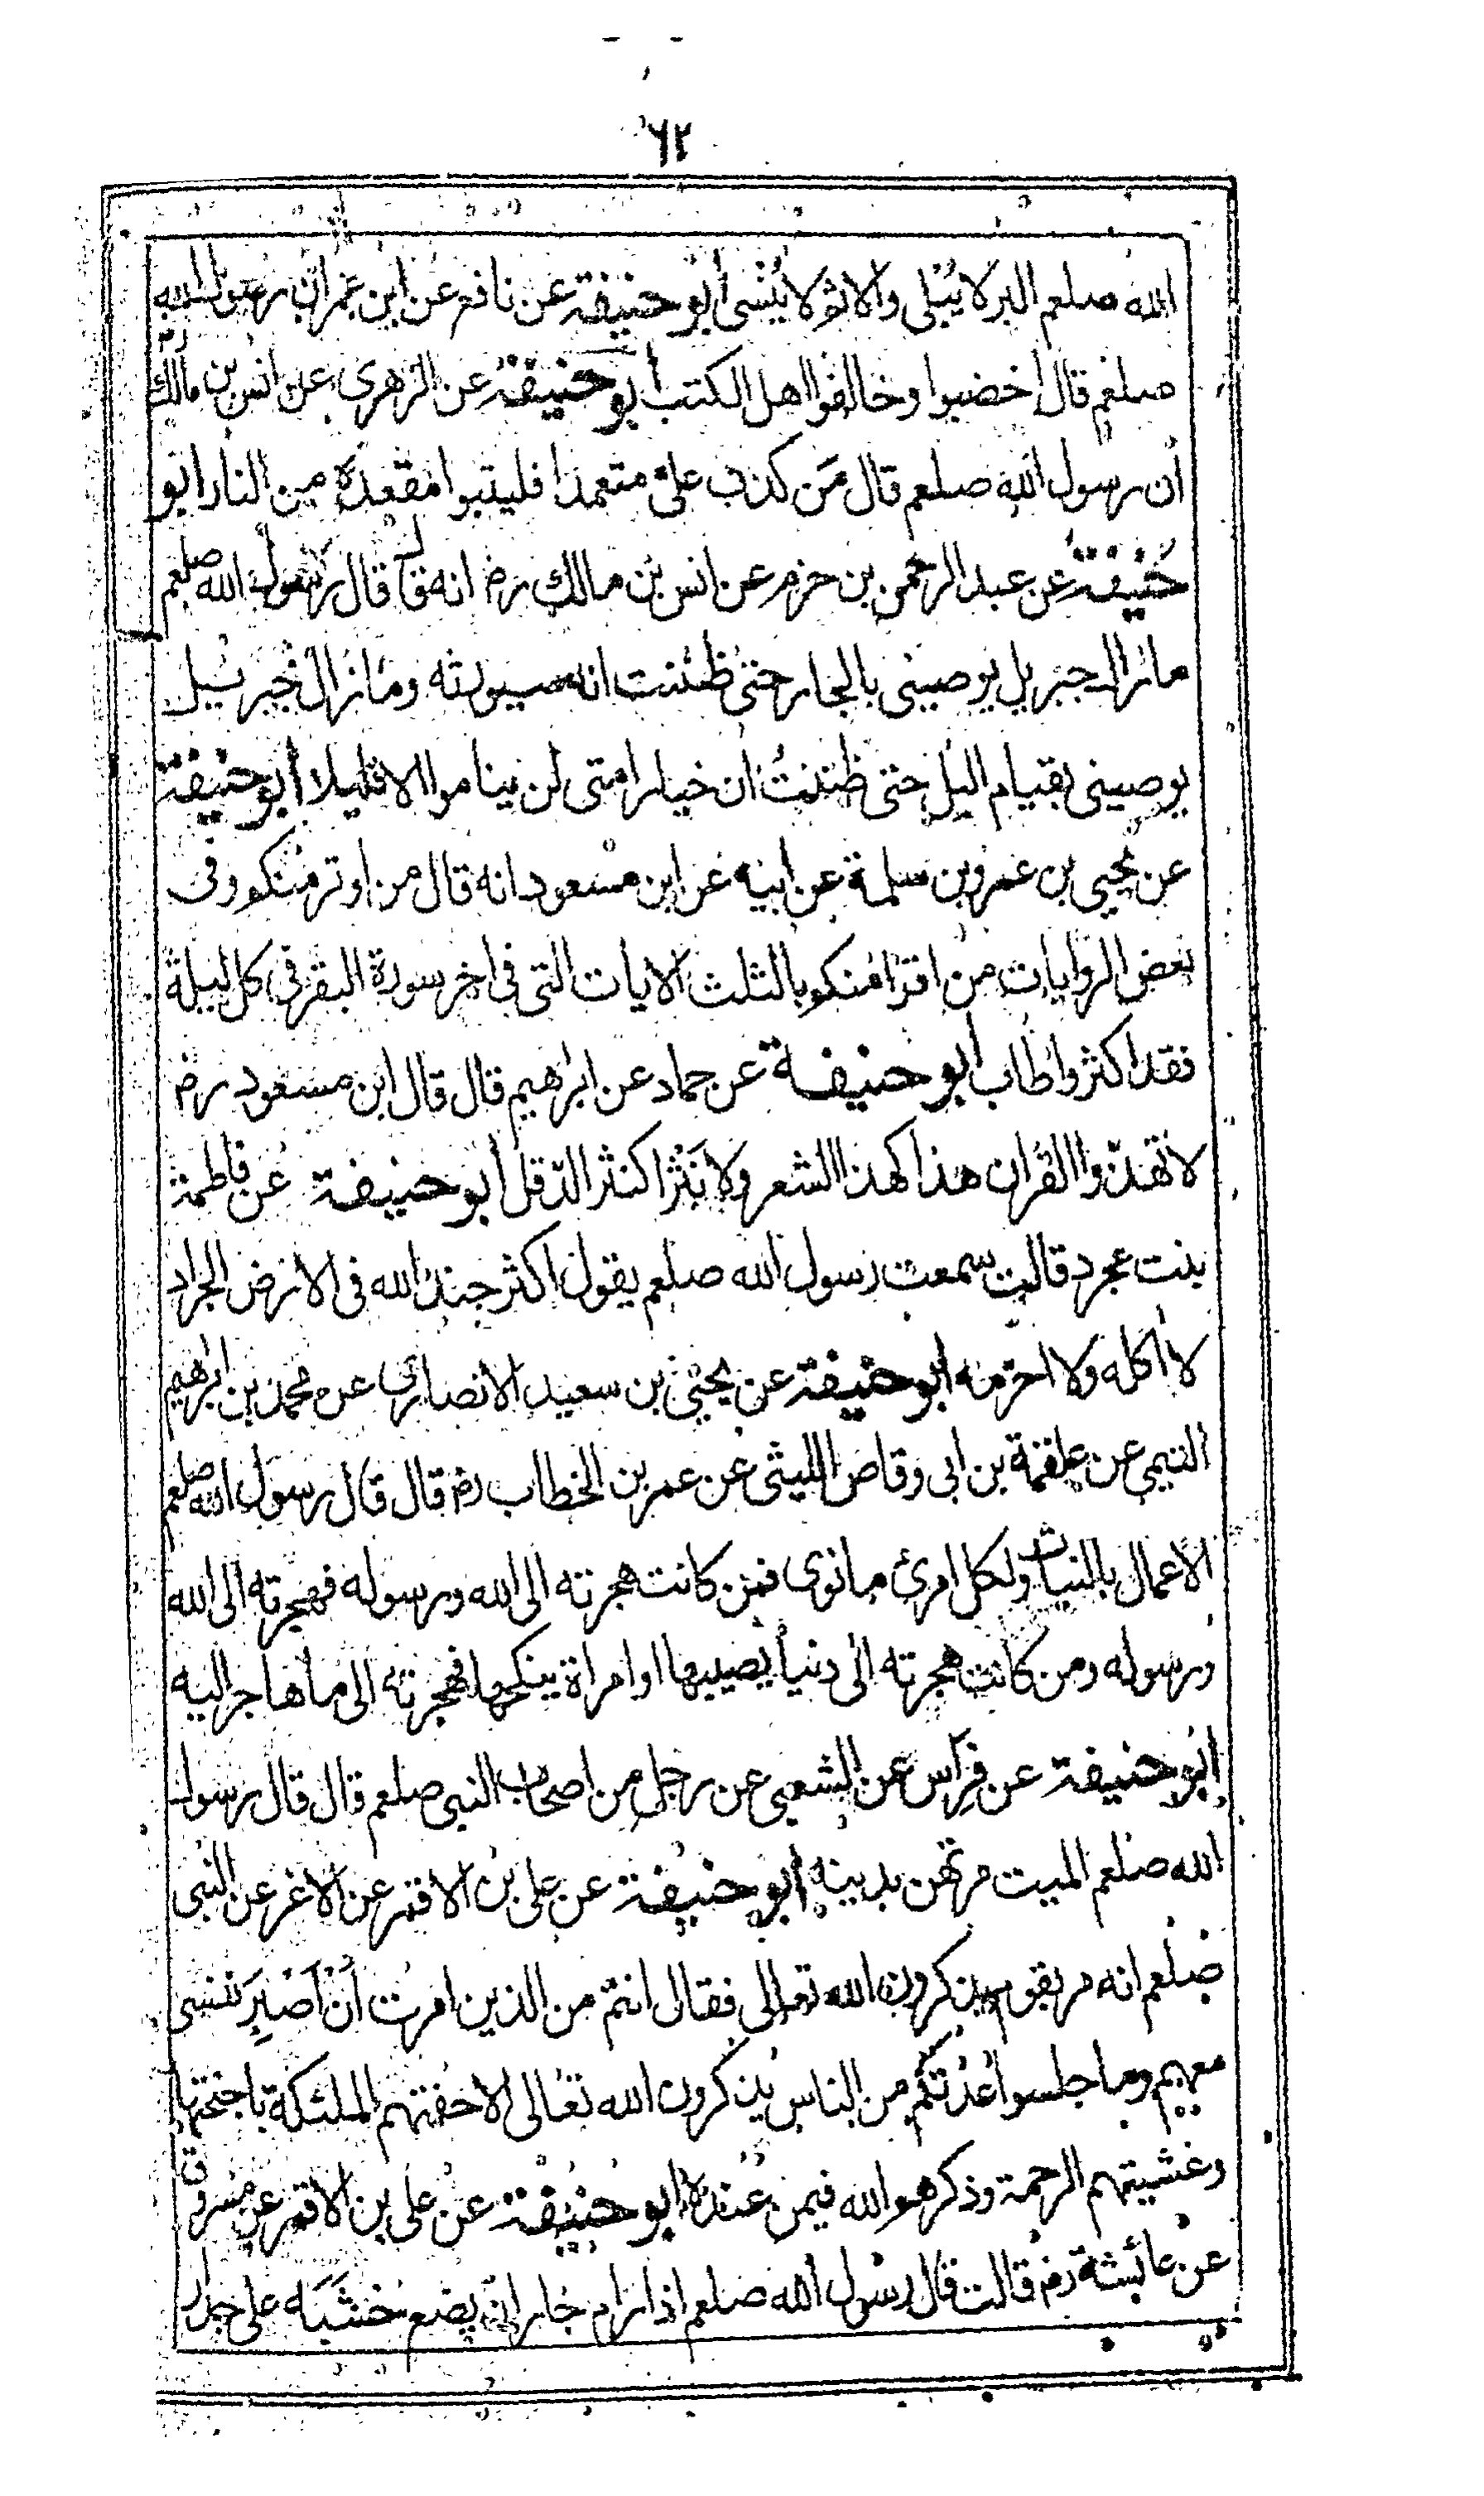 ٦٢
الله صلعم البر لا يبلى والاثم لا ينسى أبو حنيفة عن نافع عن ابن عمر ان رسول الله
صلعم قال اخضبوا وخالفوا اهل الكتب أبو حنيفة عن الزهرى عن انس بن مالك رض
أن رسول الله صلعم قال من كذب على متعمدا فليتبوا مقعده من النار ابو
حنيفة عن عبد الرحمن بن حزم عن انس بن مالك رض انه قال قال رسول الله صلعم
مازال جبريل يوصينى بالجار حتى ظننت انه سيورثه ومازال جبرئيل
يوصينى بقيام اليل حتى ظننت ان خيار امتى لن يناموا الا قليلا أبو حنيفة
عن يحيى بن عمرو بن سلمة عن ابيه عن ابن مسعود انه قال من اوتر منكم وفى
بعض الروايات من اقرا منكم بالثلث الايات التى فى اخر سورة البقر فى كل ليلة
فقد اكثر واطاب أبو حنيفة عن حماد عن ابرهيم قال قال ابن مسعود رض
لا تهذّوا القران هذا كهذا الشعر ولا نثرا كنثر الدقل أبو حنيفة عن فاطمة
بنت عجرد قالت سمعت رسول الله صلعم يقول اكثر جند الله فى الارض الجراد
لا أكله ولا احرمه ابو حنيفة عن يحيى بن سعيد الانصارى عن محمد بن ابرهيم
التيمى عن علقمة بن ابى وقاص الليثى عن عمر بن الخطاب رض قال قال رسول الله صلعم
الاعمال بالنيات ولكل امرئ مانوى فمن كانت هجرته الى الله ورسوله فهجرته الى الله
ورسوله ومن كانت هجرته الى دنيا يصيبها او امراة ينكحها فهجرته الى ما هاجر اليه
ابو حنيفة عن فراس عن الشعبى عن رجل من اصحاب النبى صلعم قال قال رسول
الله صلعم الميت مرتهن بدينه أبو حنيفة عن على بن الاقمر عن الاغر عن النبى
صلعم انه مر بقوم يذكرون الله تعالى فقال انتم من الذين امرت أن أصبر نفسى
معهم وما جلسوا عدتكم من الناس يذكرون الله تعالى الا حفتهم الملئكة باجنحتها
وغشيتهم الرحمة وذكرهم الله فيمن عنده ابو حنيفة عن على بن الاقمر عن مسروق
عن عائشة رض قالت قال رسول الله صلعم اذا رام جار ان يضع خشبه على جدار